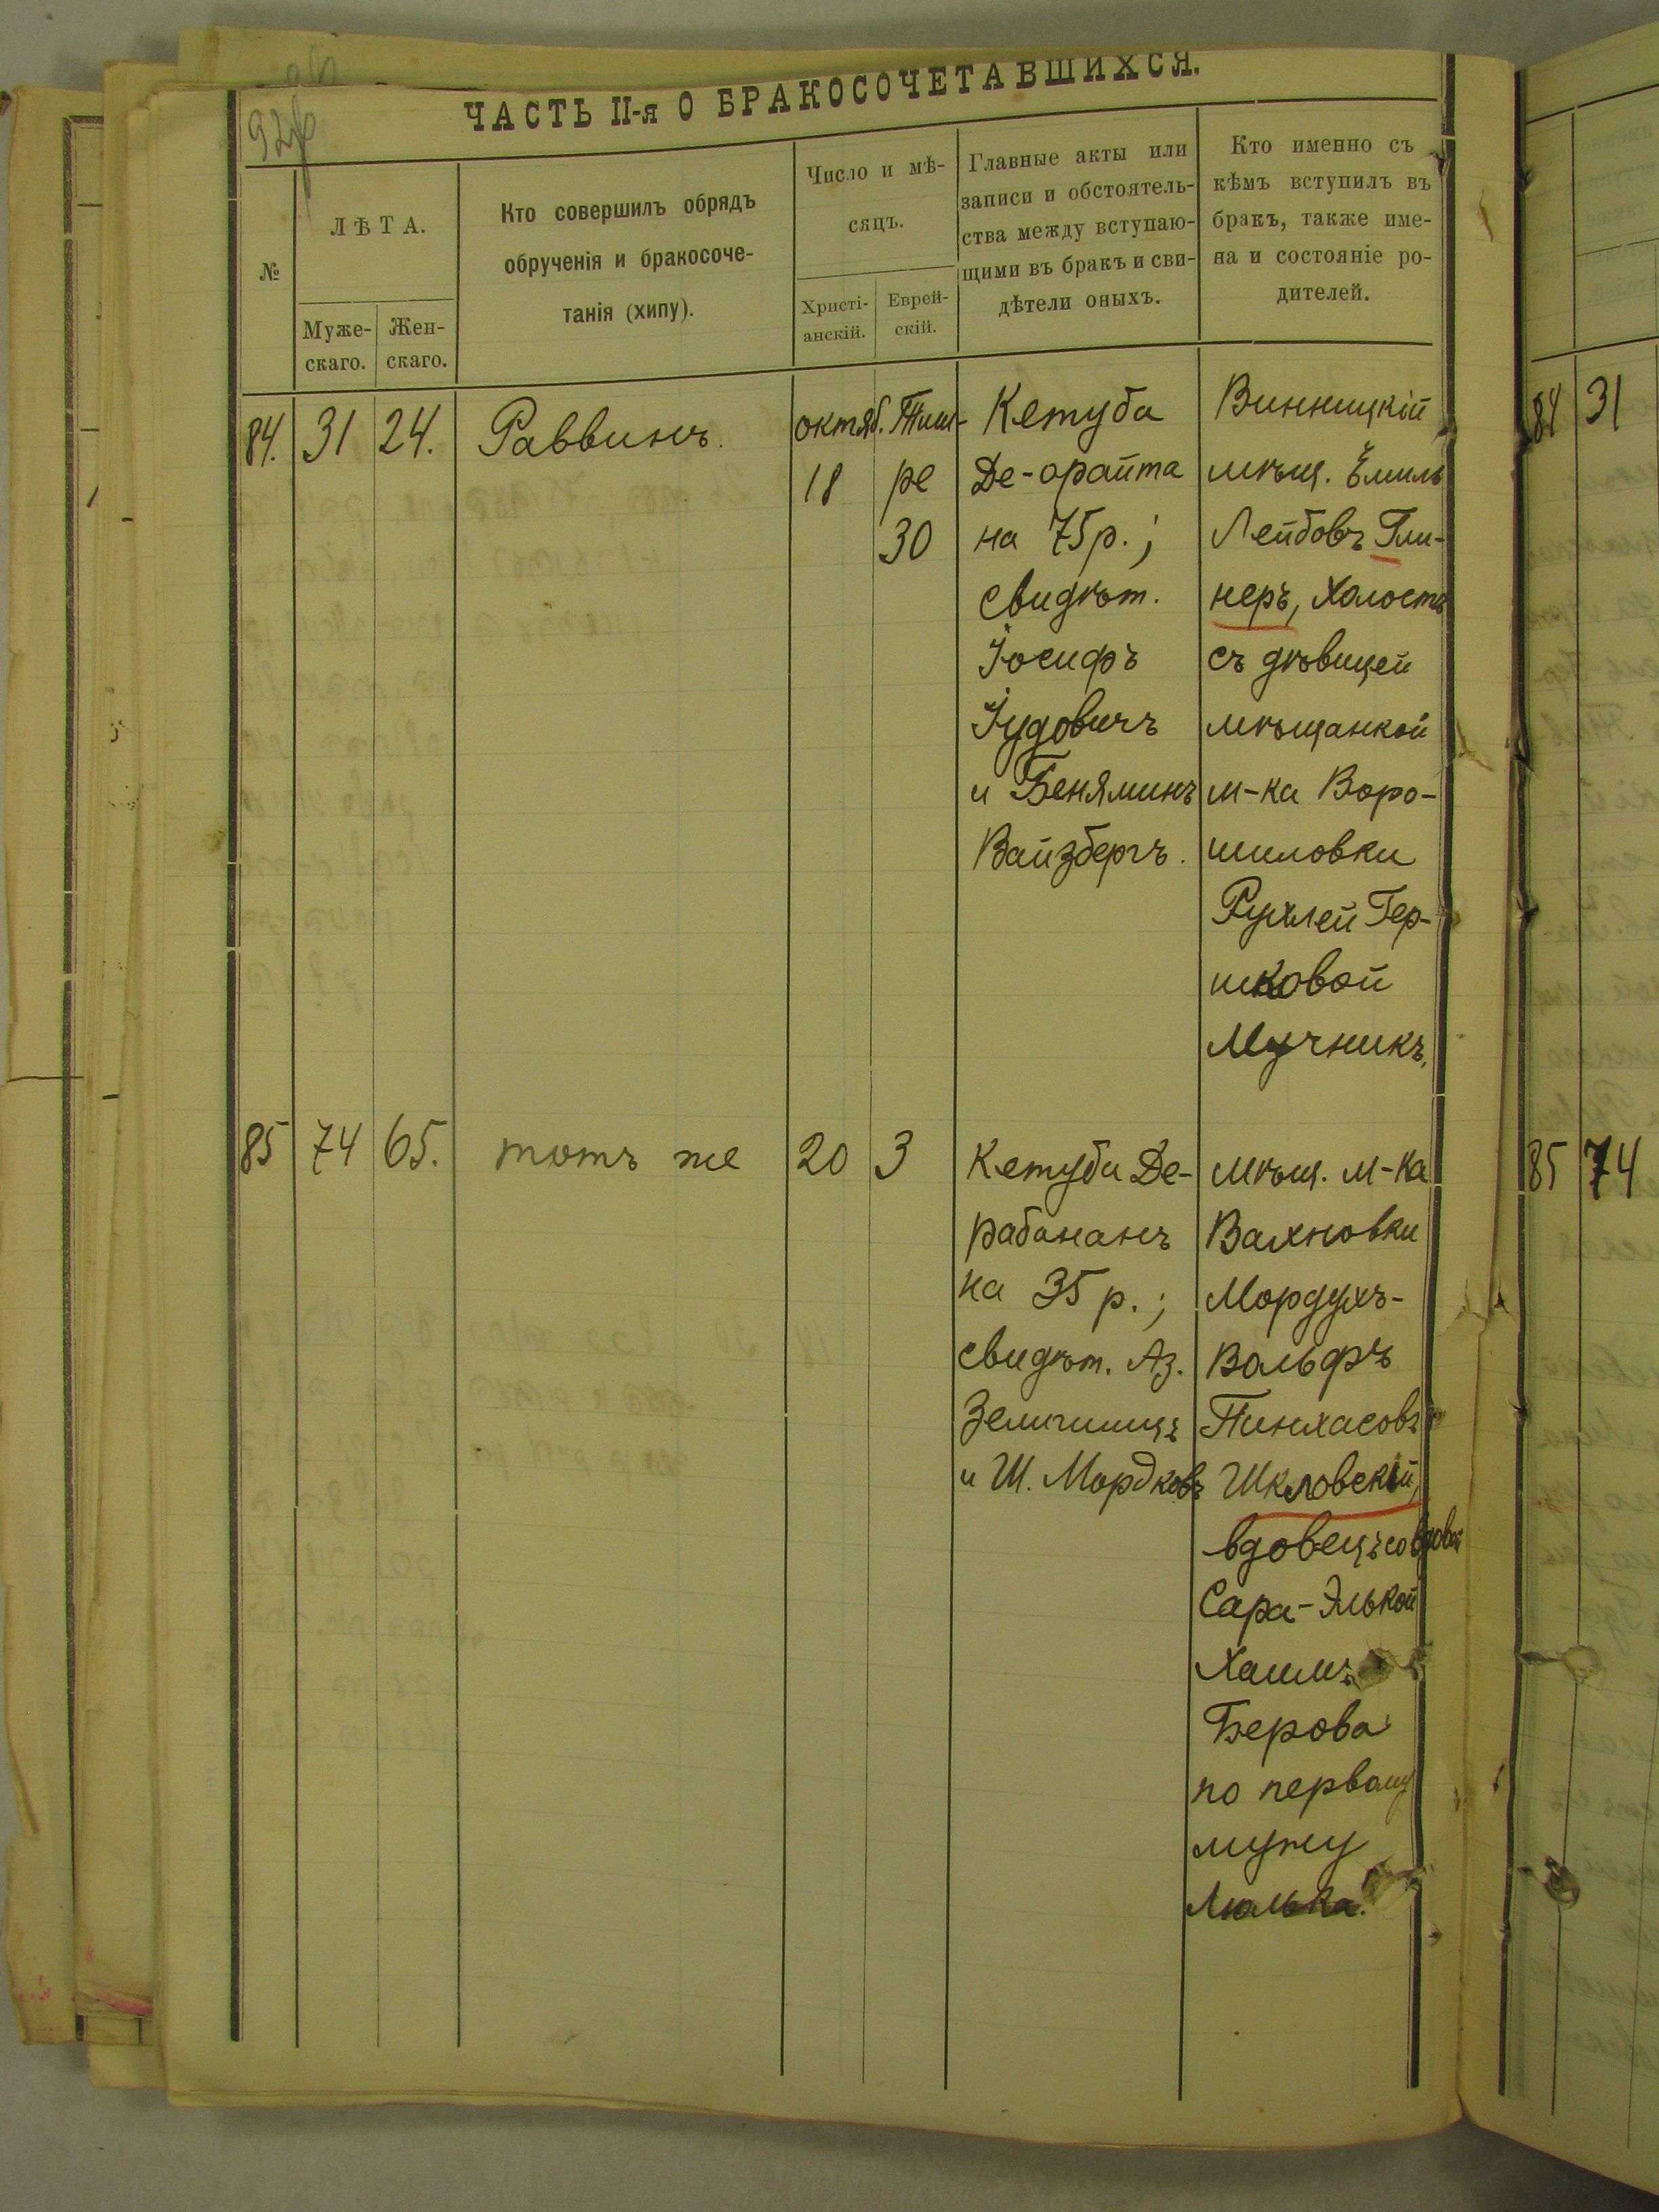 ЧАСТЬ II-я О БРАКОСОЧЕТАВШИХСЯ.
№
ЛѢТА.
Муже-
скаго.
Жен-
скаго.
Кто совершилъ обрядъ
обрученія и бракосоче-
танія (хипу).
Число и мѣ-
сяцъ.
Христі-
анскій.
Еврей-
скій.
Главные акты или
записи и обстоятель-
ства между вступаю-
щими въ бракъ и сви-
дѣтели оныхъ.
Кто именно съ
кѣмъ вступилъ въ
бракъ, также име-
на и состояніе ро-
дителей.
84.
31
24.
Раввинъ.
октяб.
18
Тиш-
ре
30
Кетуба
Де-орайта
на 75 р.;
свидѣт.
Іосифъ
Іудовичъ
и Беняминъ
Вайзбергъ.
Винницкій
мѣщ. Емиль
Лейбовъ Гли-
неръ, холостъ
съ дѣвицей
мѣщанкой
м-ка Воро-
шиловки
Рухлей Гер-
шковой
Мучникъ.
85
74
65.
тотъ же
20
3
Кетуба Де-
рабананъ
на 35 р.;
свидѣт. Аз.
Зеличишцъ
и Ш. Мордковъ
мѣщ. м-ка
Вахновки
Мордухъ-
Вольфъ
Пинхасовъ
Шкловскій,
вдовецъ со вдовой
Сара-Элькой
Хаимъ
Берова
по первому
мужу
Люлька.
84
31
85
74